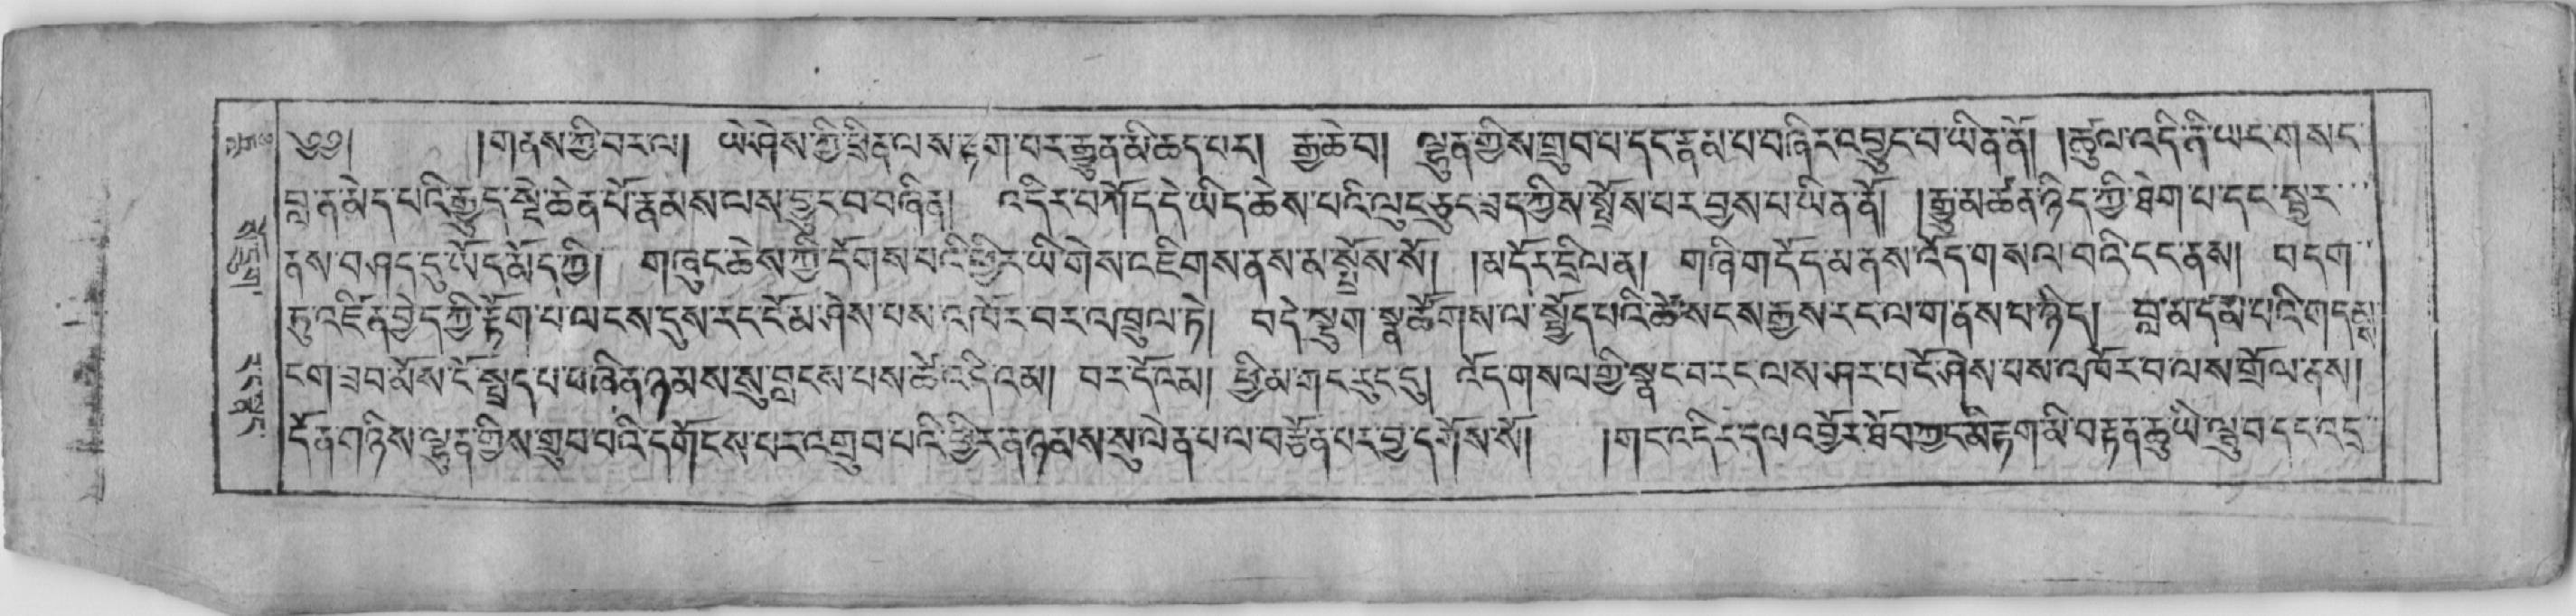 ༄༅། །གནས་ཀྱི་བར་ལ། ཡེ་ཤེས་ཀྱི་ཕྲིན་ལས་རྟག་པར་རྒྱུན་མི་ཆད་པར། རྒྱ་ཆེ་བ། ལྷུན་གྱིས་གྲུབ་པ་དང་རྣམ་པ་བཞིར་འབྱུང་བ་ཡིན་ནོ། །ཚུལ་འདི་ནི་ཡང་གསང་
བླ་ན་མེད་པའི་རྒྱུད་སྡེ་ཆེན་པོ་རྣམས་ལས་བྱུང་བ་བཞིན། འདིར་བཀོད་དེ་ཡིད་ཆེས་པའི་ལུང་ཅུང་ཟད་ཀྱིས་སྤྲོས་པར་བྱས་པ་ཡིན་ནོ། །རྒྱུ་མཚན་ཉིད་ཀྱི་ཐེག་པ་དང་སྦྱར་
ནས་བཤད་དུ་ཡོད་མོད་ཀྱི། གཞུང་ཆེས་ཀྱི་དོགས་པའི་ཕྱིར་ཡི་གེས་འཇིགས་ནས་མ་སྤྲོས་སོ། །མདོར་དྲིལ་ན། གཞི་གདོད་མ་ནས་འོད་གསལ་བའི་དང་ནས། བདག་
ཏུ་འཛིན་བྱེད་ཀྱི་རྟོག་པ་ལངས་དུས་རང་ངོ་མ་ཤེས་པས་འཁོར་བར་འཁྲུལ་ཏེ། བདེ་སྡུག་སྣ་ཚོགས་ལ་སྤྱོད་པའི་ཚེ་སངས་རྒྱས་རང་ལ་གནས་པ་ཉིད། བླ་མ་དམ་པའི་གདམ
ངག་ཟབ་མོས་ངོ་སྤྲད་པ་བཞིན་ཉམས་སུ་བླངས་པས་ཚེ་འདི་འམ། བར་དོའམ། ཕྱི་མ་གང་རུང་དུ། འོད་གསལ་གྱི་སྣང་བ་རང་ལས་ཤར་བ་ངོ་ཤེས་པས་འཁོར་བ་ལས་གྲོལ་ནས།
དོན་གཉིས་ལྷུན་གྱིས་གྲུབ་པའི་དགོངས་པར་འགྲུབ་པའི་ཕྱིར་ན་ཉམས་སུ་ལེན་པ་ལ་བརྩོན་པར་བྱ་དགོས་སོ། །གང་འདིར་དལ་འབྱོར་ཐོབ་ཀྱང་མི་རྟག་མི་བརྟན་ཆུ་ཡི་ལྦུ་བ་དང་འདྲ